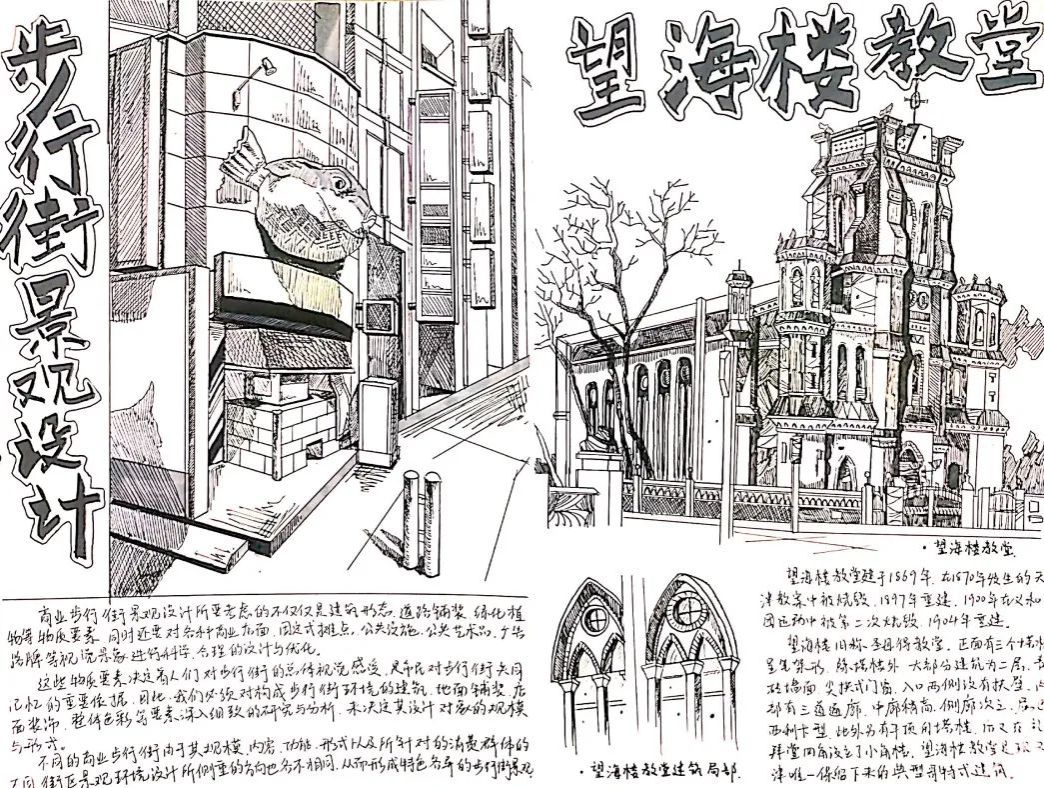 步行街景观设计
商业步行街景观设计所要考虑的不仅仅是建筑形态、道路铺装、绿化植
物等物质要素,同时还要对各种商业店面、固定式摊点、公共设施、公共艺术品、广告
路牌等视觉景象进行科学、合理的设计与优化。
这些物质要素决定着人们对步行街的总体视觉感受,是市民对步行街共同
记忆的重要依据。因此,我们必须对构成步行街环境的建筑、地面铺装、店
面装饰、整体色彩等要素深入细致的研究与分析,来决定其设计对象的规模
与形式。
不同的商业步行街由于其规模、内容、功能、形式以及所针对的消费群体的
不同,街区景观环境设计所侧重的方向也各不相同,从而形成特色各异的步行街景观
望海楼教堂
·望海楼教堂
·望海楼教堂建筑局部.
望海楼教堂建于1869年,在1870年发生的天
津教案中被烧毁,1897年重建,1900年在义和
团运动中被第二次烧毁,1904年重建。
望海楼旧称圣母得胜堂,正面有三个塔楼
呈笔架形,除塔楼外,大部分建筑为二层,青
砖墙面,尖拱式门窗,入口两侧设有扶壁,内
部有三道通廊,中廊稍高,侧廊次之,属巴
西利卡型,此外另有平顶角塔楼,而又在
拜堂四角设立了小角楼。望海楼教堂是
津唯一保留下来的典型哥特式建筑。